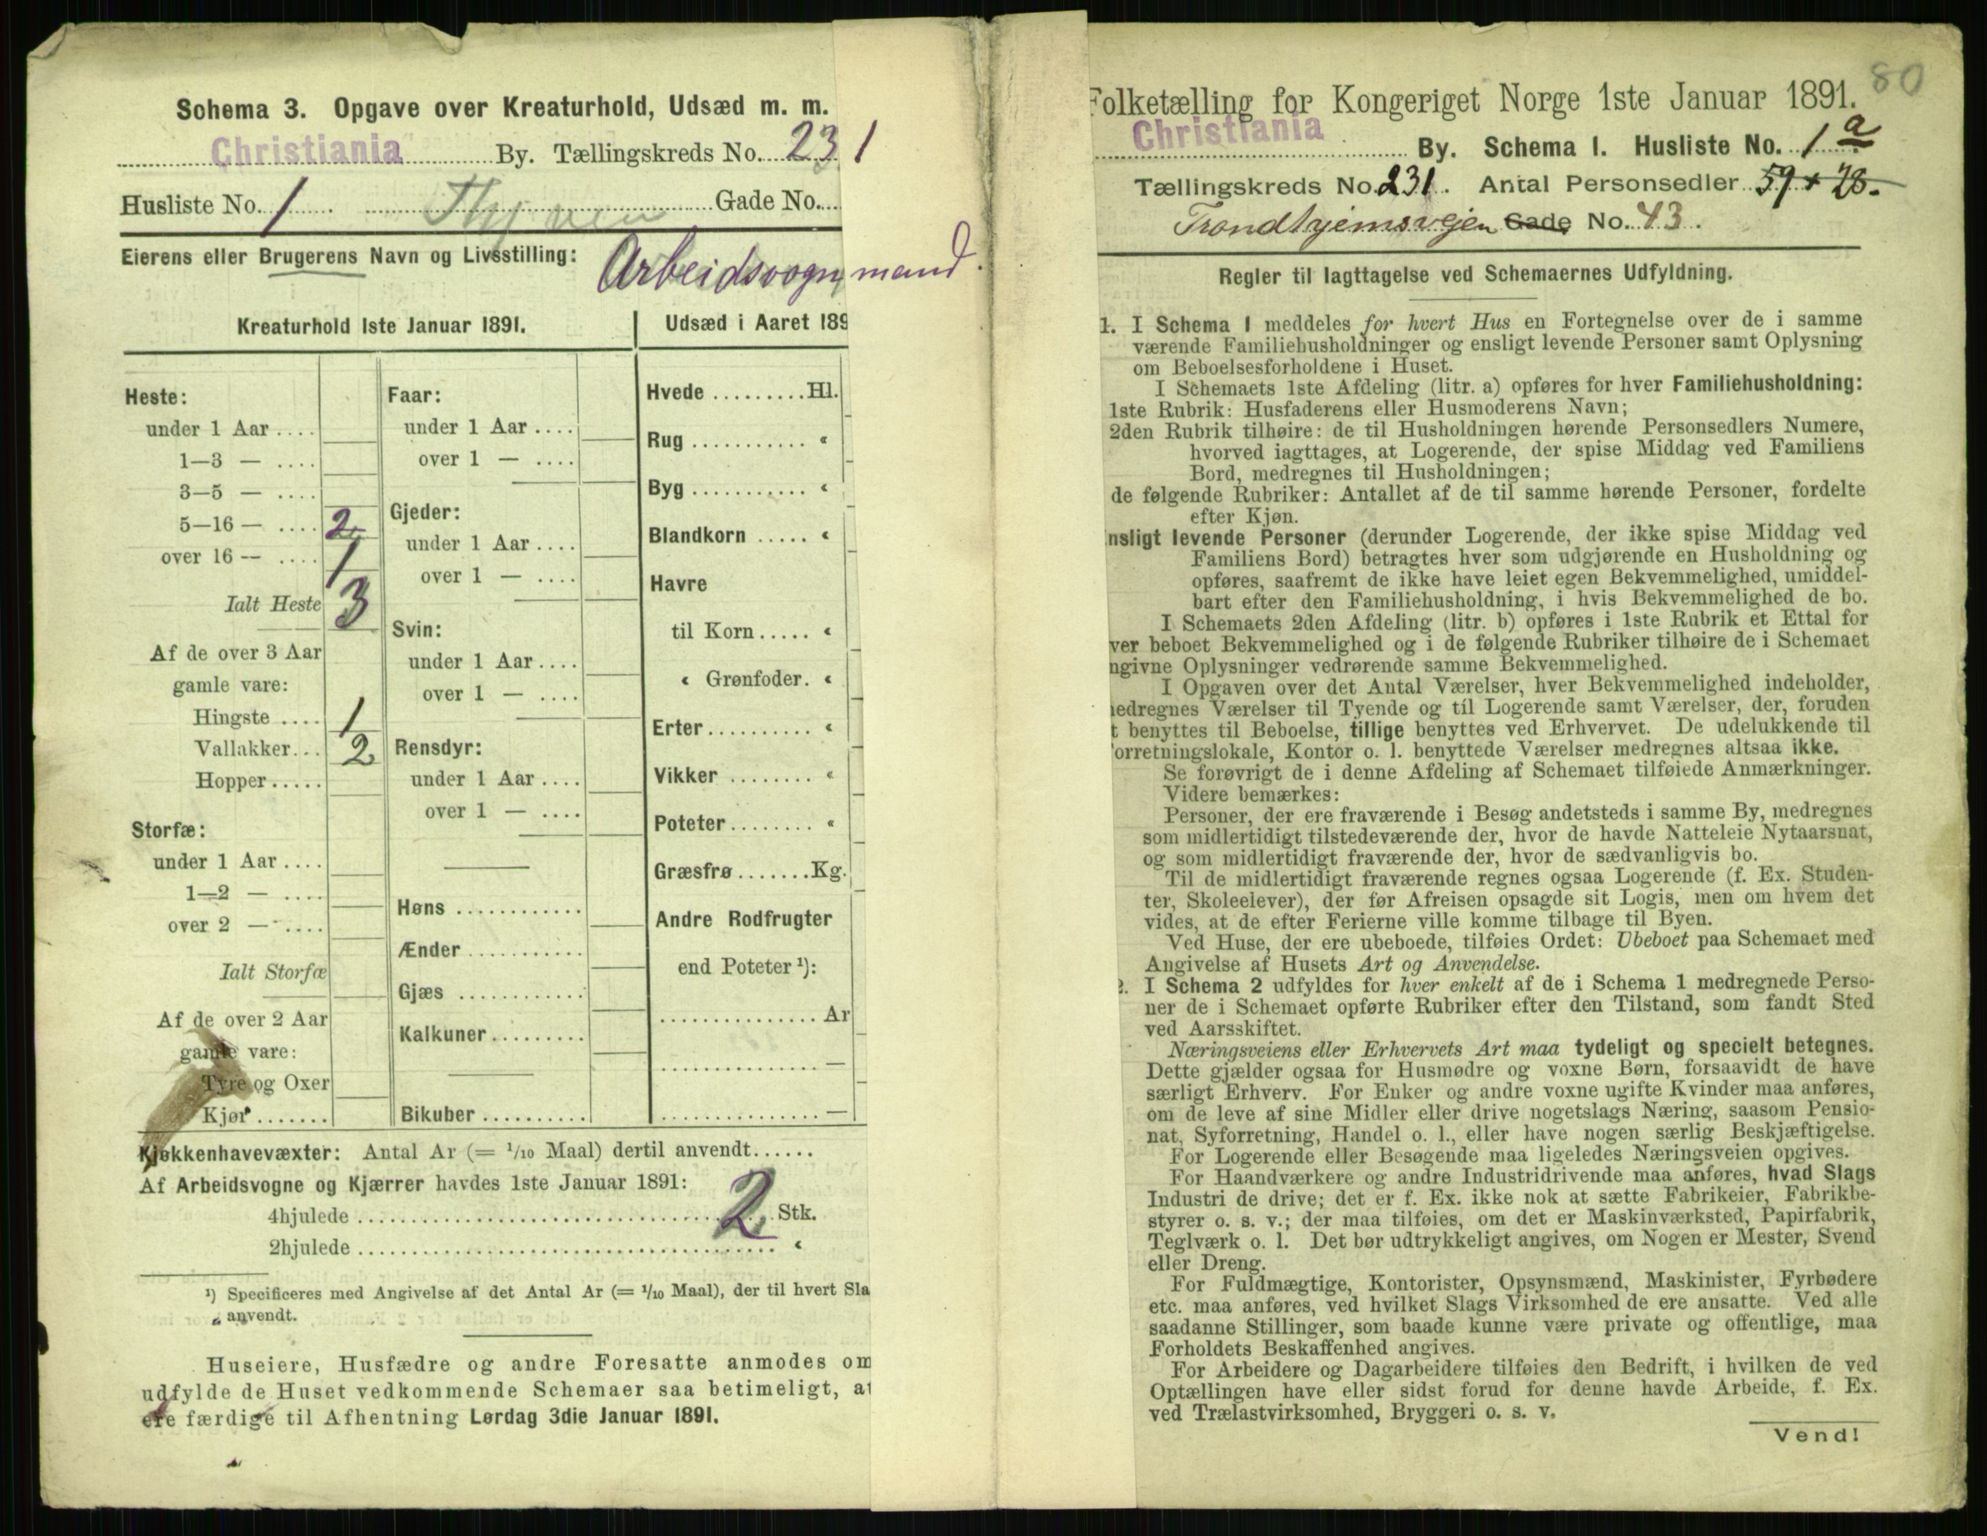 Schema 3. Opgave over Kreaturhold, Udsæd m. m.
Christiania By. Tællingskreds No. 231
Husliste No. 1 Gade No.
Eierens eller Brugerens Navn og Livsstilling: Arbeidsvognmand.
Kreaturhold 1ste Januar 1891.
Heste:
under 1 Aar ....
1—3 — ....
3—5 — ....
5—16 — .... 2
over 16 — .... 1
Ialt Heste 3
Af de over 3 Aar
gamle vare:
Hingste .... 1
Vallakker... 2
Hopper.....
Storfæ:
under 1 Aar ....
1—2 — ....
over 2 — ....
Ialt Storfæ
Af de over 2 Aar
gamle vare:
Tyre og Oxer
Kjør.......
Faar:
under 1 Aar ....
over 1 — ....
Gjeder:
under 1 Aar ....
over 1 — ....
Svin:
under 1 Aar ....
over 1 — ....
Rensdyr:
under 1 Aar ....
over 1 — ....
Høns ............
Ænder ...........
Gjæs ............
Kalkuner.........
Bikuber ..........
Udsæd i Aaret 189
Hvede .........Hl.
Rug ........... «
Byg ........... «
Blandkorn ..... «
Havre
til Korn..... «
« Grønfoder. «
Erter.......... «
Vikker ........ «
Poteter........ «
Græsfrø .......Kg.
Andre Rodfrugter
end Poteter ¹):
............... Ar
............... —
............... —
Kjøkkenhavevæxter: Antal Ar (= 1/10 Maal) dertil anvendt......
Af Arbeidsvogne og Kjærrer havdes 1ste Januar 1891:
4hjulede ........ 2 Stk.
2hjulede ........ «
¹) Specificeres med Angivelse af det Antal Ar (= 1/10 Maal), der til hvert Sla
anvendt.
Huseiere, Husfædre og andre Foresatte anmodes om
udfylde de Huset vedkommende Schemaer saa betimeligt, at
ere færdige til Afhentning Lørdag 3die Januar 1891.
80
Folketælling for Kongeriget Norge 1ste Januar 1891.
Christiania By. Schema 1. Husliste No. 1 a
Tællingskreds No. 231. Antal Personsedler 59 + 28.
Trondhjemsvejen Gade No. 43.
Regler til Iagttagelse ved Schemaernes Udfyldning.
1. I Schema 1 meddeles for hvert Hus en Fortegnelse over de i samme
værende Familiehusholdninger og ensligt levende Personer samt Oplysning
om Beboelsesforholdene i Huset.
I Schemaets 1ste Afdeling (litr. a) opføres for hver Familiehusholdning:
1ste Rubrik: Husfaderens eller Husmoderens Navn;
2den Rubrik tilhøire: de til Husholdningen hørende Personsedlers Numere,
hvorved iagttages, at Logerende, der spise Middag ved Familiens
Bord, medregnes til Husholdningen;
de følgende Rubriker: Antallet af de til samme hørende Personer, fordelte
efter Kjøn.
nsligt levende Personer (derunder Logerende, der ikke spise Middag ved
Familiens Bord) betragtes hver som udgjørende en Husholdning og
opføres, saafremt de ikke have leiet egen Bekvemmelighed, umiddel-
bart efter den Familiehusholdning, i hvis Bekvemmelighed de bo.
I Schemaets 2den Afdeling (litr. b) opføres i 1ste Rubrik et Ettal for
ver beboet Bekvemmelighed og i de følgende Rubriker tilhøire de i Schemaet
ngivne Oplysninger vedrørende samme Bekvemmelighed.
I Opgaven over det Antal Værelser, hver Bekvemmelighed indeholder,
edregnes Værelser til Tyende og til Logerende samt Værelser, der, foruden
t benyttes til Beboelse, tillige benyttes ved Erhvervet. De udelukkende til
orretningslokale, Kontor o. l. benyttede Værelser medregnes altsaa ikke.
Se forøvrigt de i denne Afdeling af Schemaet tilføiede Anmærkninger.
Videre bemærkes:
Personer, der ere fraværende i Besøg andetsteds i samme By, medregnes
som midlertidigt tilstedeværende der, hvor de havde Natteleie Nytaarsnat,
og som midlertidigt fraværende der, hvor de sædvanligvis bo.
Til de midlertidigt fraværende regnes ogsaa Logerende (f. Ex. Studen-
ter, Skoleelever), der før Afreisen opsagde sit Logis, men om hvem det
vides, at de efter Ferierne ville komme tilbage til Byen.
Ved Huse, der ere ubeboede, tilføies Ordet: Ubeboet paa Schemaet med
Angivelse af Husets Art og Anvendelse.
2. I Schema 2 udfyldes for hver enkelt af de i Schema 1 medregnede Perso-
ner de i Schemaet opførte Rubriker efter den Tilstand, som fandt Sted
ved Aarsskiftet.
Næringsveiens eller Erhvervets Art maa tydeligt og specielt betegnes.
Dette gjælder ogsaa for Husmødre og voxne Børn, forsaavidt de have
særligt Erhverv. For Enker og andre voxne ugifte Kvinder maa anføres,
om de leve af sine Midler eller drive nogetslags Næring, saasom Pensio-
nat, Syforretning, Handel o. l., eller have nogen særlig Beskjæftigelse.
For Logerende eller Besøgende maa ligeledes Næringsveien opgives.
For Haandværkere og andre Industridrivende maa anføres, hvad Slags
Industri de drive; det er f. Ex. ikke nok at sætte Fabrikeier, Fabrikbe-
styrer o. s. v.; der maa tilføies, om det er Maskinværksted, Papirfabrik,
Teglværk o. l. Det bør udtrykkeligt angives, om Nogen er Mester, Svend
eller Dreng.
For Fuldmægtige, Kontorister, Opsynsmænd, Maskinister, Fyrbødere
etc. maa anføres, ved hvilket Slags Virksomhed de ere ansatte. Ved alle
saadanne Stillinger, som baade kunne være private og offentlige, maa
Forholdets Beskaffenhed angives.
For Arbeidere og Dagarbeidere tilføies den Bedrift, i hvilken de ved
Optællingen have eller sidst forud for denne havde Arbeide, f. Ex.
ved Trælastvirksomhed, Bryggeri o. s. v.
Vend!